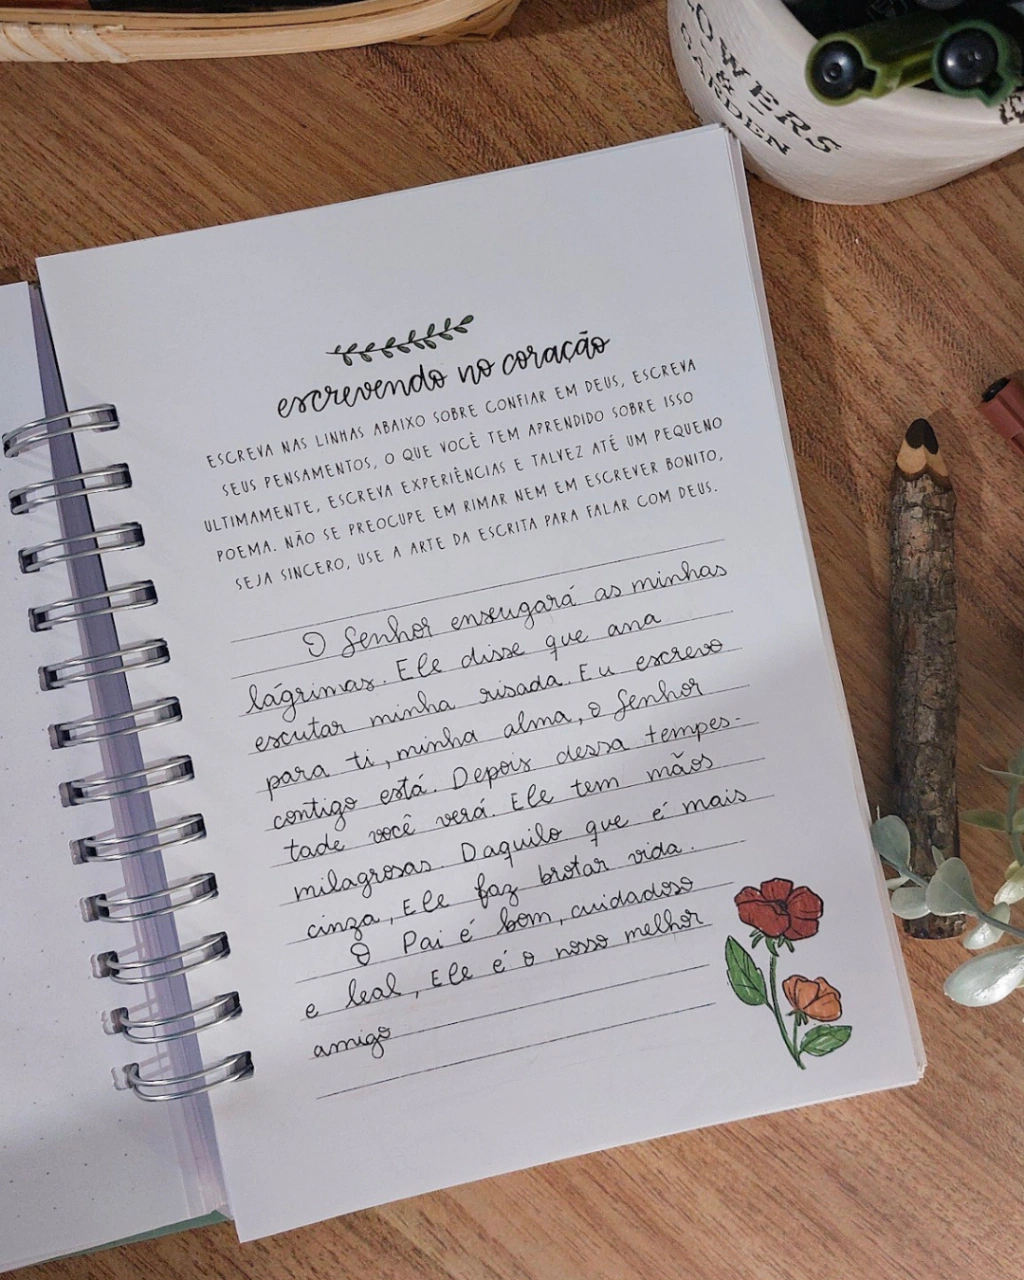 FLOWERS
&
GARDEN
escrevendo no coração
ESCREVA NAS LINHAS ABAIXO SOBRE CONFIAR EM DEUS, ESCREVA
SEUS PENSAMENTOS, O QUE VOCÊ TEM APRENDIDO SOBRE ISSO
ULTIMAMENTE, ESCREVA EXPERIÊNCIAS E TALVEZ ATÉ UM PEQUENO
POEMA. NÃO SE PREOCUPE EM RIMAR NEM EM ESCREVER BONITO,
SEJA SINCERO, USE A ARTE DA ESCRITA PARA FALAR COM DEUS.
O Senhor enxugará as minhas
lágrimas. Ele disse que ama
escutar minha risada. Eu escrevo
para ti, minha alma, o Senhor
contigo está. Depois dessa tempes-
tade você verá. Ele tem mãos
milagrosas. Daquilo que é mais
cinza, Ele faz brotar vida.
O Pai é bom, cuidadoso
e leal, Ele é o nosso melhor
amigo